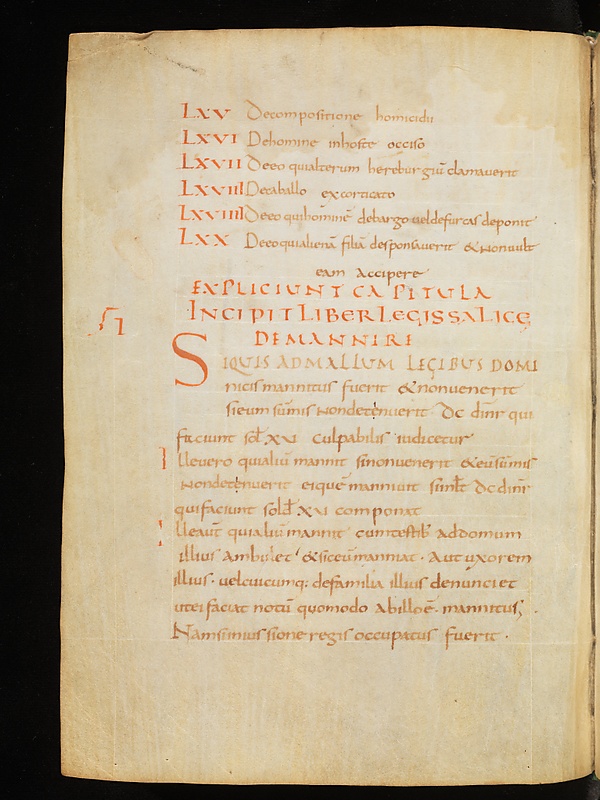 LXV De compositione homicidii
LXVI De homine in hoste occiso
LXVII De eo qui alterum hereburgiu clamaverit
LXVIII De caballo excorticato
LXVIIII De eo qui hominē de bargo vel de furcas deponit
LXX De eo qui alienā filiā desponsaverit & non vult
eam accipere
EXPLICIUNT CAPITULA
INCIPIT LIBER LEGIS SALICE
DE MANNIRE
SIQUIS AD MALLUM LEGIBUS DOMI
nicis mannitus fuerit & non venerit
si eum sūnis non detenuerit DC dīnr qui
faciunt sol XV culpabilis iudicetur
Ille vero qui aliū mannit si non venerit & eū sūmis
non detenuerit ei quē manniuit simłt DC dīnr
qui faciunt sold XV componat
Ille aut̄ qui aliū mannit cum testib; ad domum
illius ambulet & sic eū manniat. Aut uxorem
illius. vel cuicumq: de familia illius denunciet
ut ei faciat notū quomodo ab illo ē. mannitus;
Nam si in iussione regis occupatus fuerit.